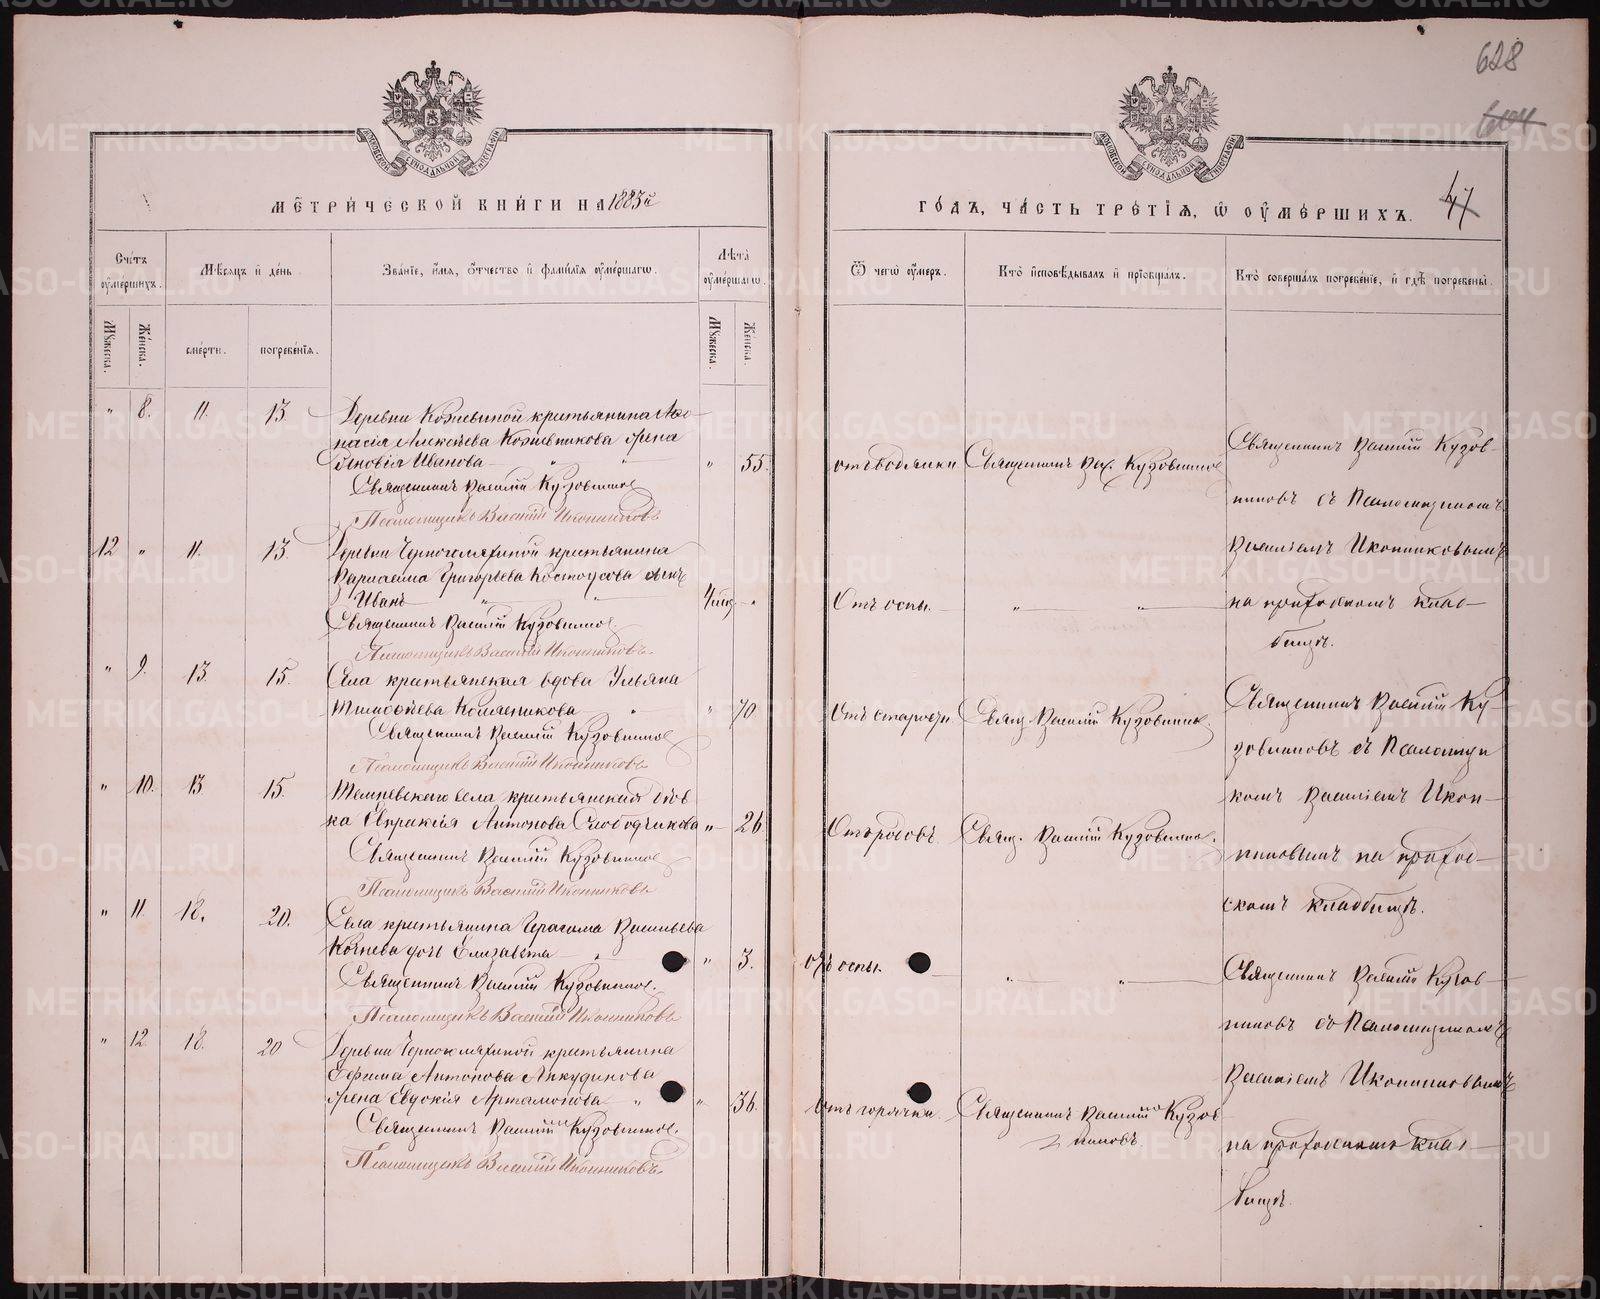 628
604
47
МЕТРИЧЕСКОЙ КНИГИ НА 1883й
ГОДЪ, ЧАСТЬ ТРЕТІЯ, Ѡ ОУМЕРШИХЪ.
Счетъ оумершихъ.
Мѣсяцъ и день
Званіе, имя, отчество и фамилія оумершагѡ.
Лѣта оумершагѡ.
Ѿ чегѡ оумеръ.
Кто исповѣдывалъ и пріобщалъ.
Кто совершалъ погребеніе, и гдѣ погребены.
Мужеска.
Женска.
смерти.
погребенія.
Мужеска.
Женска.
" 8. 11. 13
Деревни Кожевиной крестьянина Аѳо-
насія Алексѣева Кожевникова жена
Ѳеновія Иванова " 55.
отъ водянки Священникъ Вас. Кузовниковъ
Священникъ Василій Кузовниковъ
Псаломщикъ Василій Иконниковъ
Священникъ Василій Кузов-
никовъ съ Псаломщикомъ
Василіемъ Иконниковымъ
на приходскомъ клад-
бищѣ.
12 " 11. 13.
Деревни Черноголяхиной крестьянина
Варлаама Григорьева Костоусова сынъ
Иванъ 4 мѣс. "
Отъ оспы. " "
Священникъ Василій Кузовниковъ
Псаломщикъ Василій Иконниковъ.
" 9. 13. 15.
Села крестьянская вдова Ульяна
Тимоѳеева " 70
Отъ старости Свящ. Василій Кузовниковъ.
Священникъ Василій Кузовниковъ
Псаломщикъ Василій Иконниковъ
Священникъ Василій Ку-
зовниковъ съ Псаломщи
комъ Василіемъ Икон-
никовымъ на приход-
скомъ кладбищѣ.
" 10. 13 15.
села крестьянская
Евпраксія Антонова Слободчикова " 26
Отъ родовъ. Свящ. Василій Кузовниковъ.
Священникъ Василій Кузовниковъ
Псаломщикъ Василій Иконниковъ
" 11. 18. 20.
Села крестьянина Герасима Васильева
Кочнева дочь Елизавета " 3.
отъ оспы. " "
Священникъ Василій Кузовниковъ.
Псаломщикъ Василій Иконниковъ
Священникъ Василій Кузов-
никовъ съ Псаломщикомъ
Василіемъ Иконниковымъ
на приходскомъ клад-
бищѣ.
" 12. 18. 20
Деревни Черноголяхиной крестьянина
Ефима Антонова Анкудинова
жена Евдокія Артамонова " 36.
Отъ горячки. Священникъ Василій Кузов
никовъ
Священникъ Василій Кузовниковъ.
Псаломщикъ Василій Иконниковъ.
METRIKI.GASO-URAL.RU